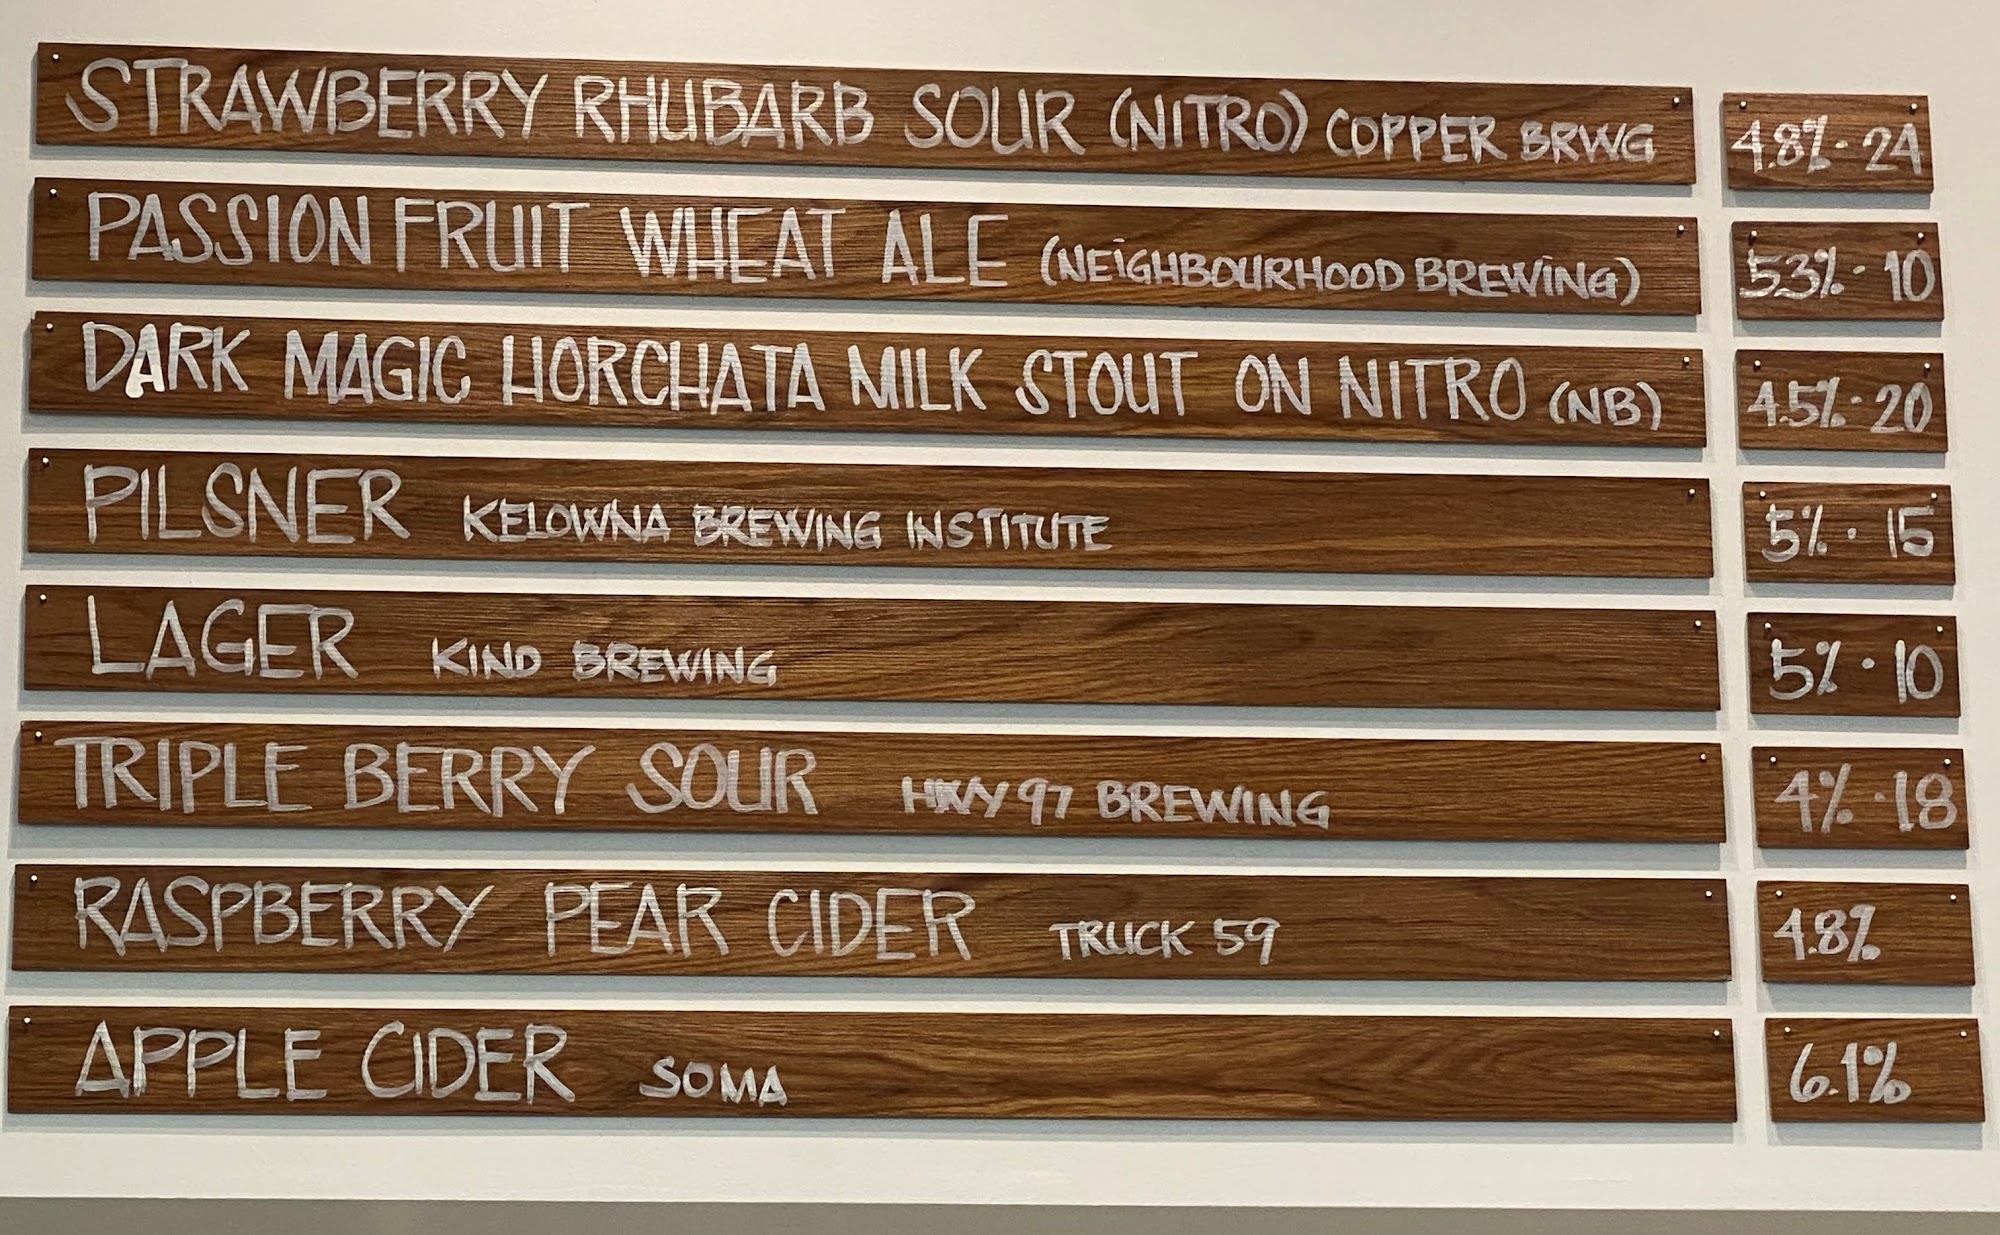 STRAWBERRY RHUBARB SOUR (NITRO) COPPER BRWG 4.8% · 24
PASSION FRUIT WHEAT ALE (NEIGHBOURHOOD BREWING) 5.3% · 10
DARK MAGIC HORCHATA MILK STOUT ON NITRO (NB) 4.5% · 20
PILSNER KELOWNA BREWING INSTITUTE 5% · 15
LAGER KIND BREWING 5% · 10
TRIPLE BERRY SOUR HWY 97 BREWING 4% · 18
RASPBERRY PEAR CIDER TRUCK 59 4.8%
APPLE CIDER SOMA 6.1%